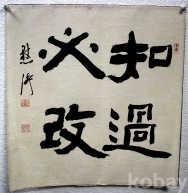 知過
必改
kobay